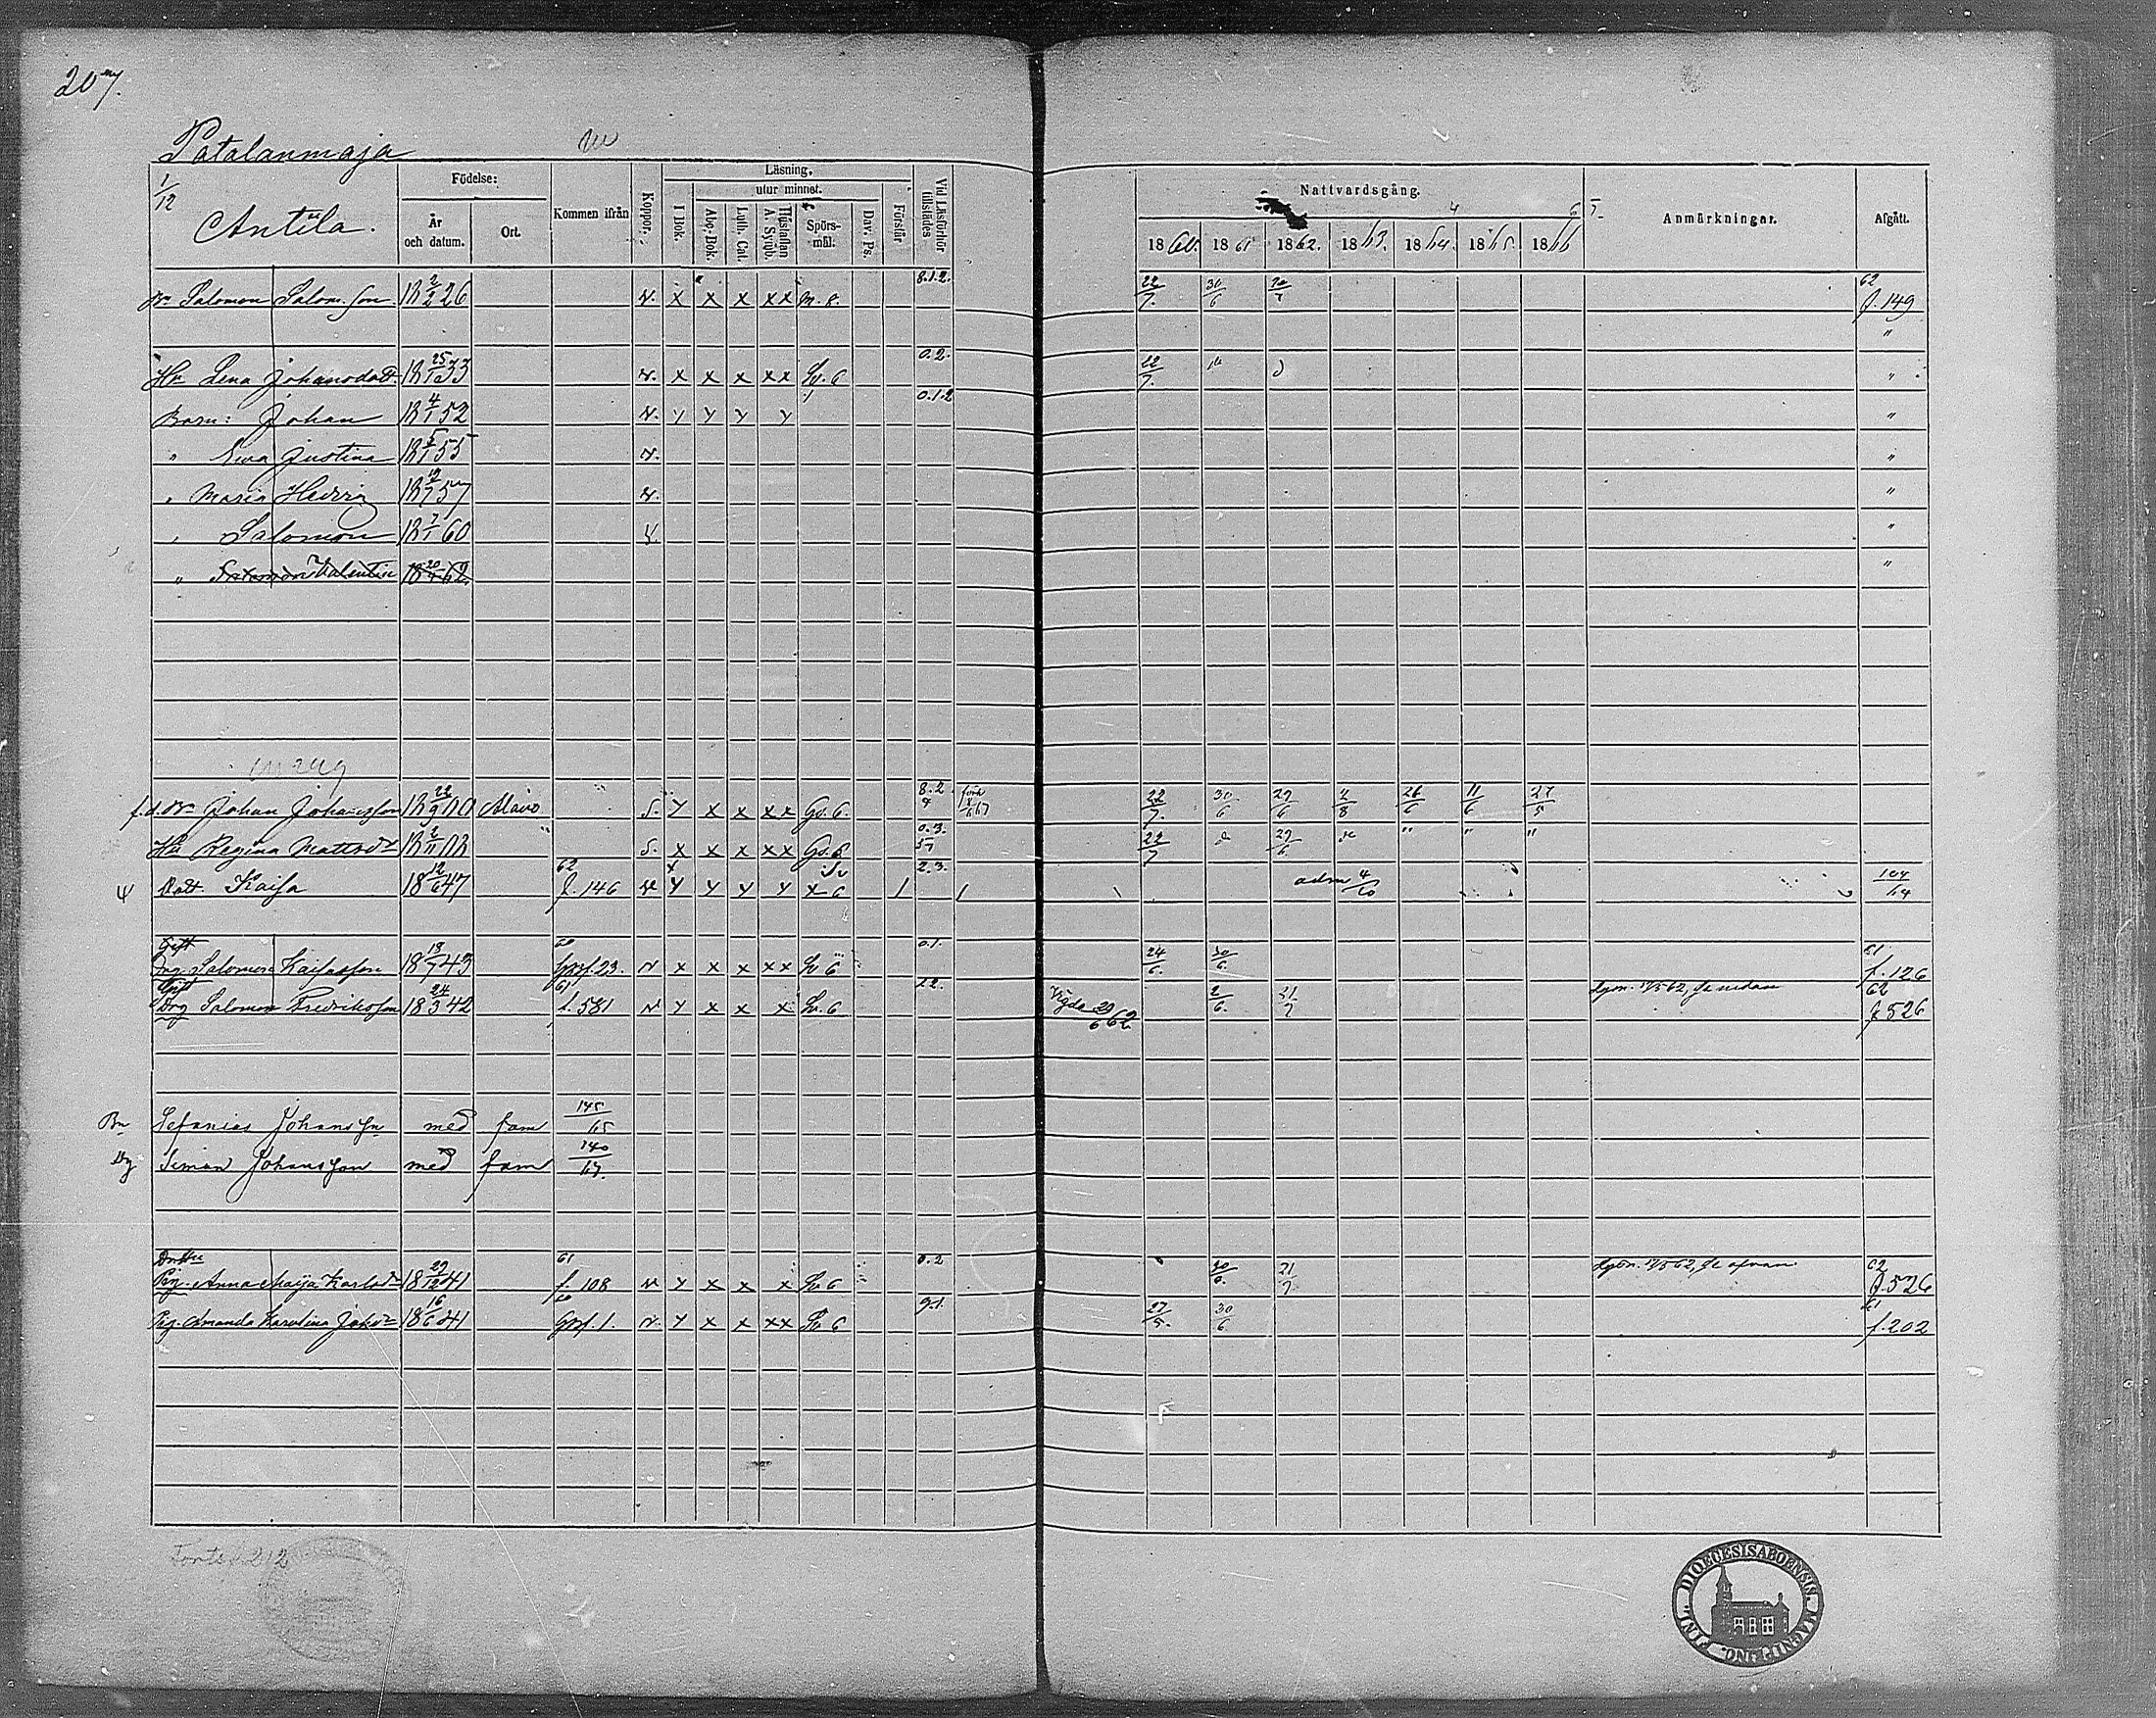 207.
Patalanmaja
1/12 Antila.
Födelse:
År och datum.
Ort.
Kommen ifrån
Koppor.
Läsning,
I Bok.
utur minnet.
Abc-Bok.
Luth. Cat.
Hustaflan A. Symb.
Spörsmål.
Dav. Ps.
Förstår
Vid Läsförhör tillstädes
Nattvardsgång.
1860. 1861 1862. 1863. 1864. 1865. 1866
Anmärkningar.
Afgått.
Salomon Salom.son 18 2/2 26 v. x x x xx 8.1.2. 22/7. 30/6 62 f. 149
"
Hu Lena Johansdott. 18 25/1 33 v. x x x xx Sv. 6 0.2. 22/7. "
Barn: Johan 18 4/1 52 v. y y y y 0.1.2 "
" Ewa Justina 18 5/1 55 v. "
" Maria Hedvig 18 57 v. "
" Salomon 18 7/1 60 v. "
" Salomon Valentin 18 20/4 62 "
f.d. Bn Johan Johansson 18 22/9 00 Alavo S. y x x xx Go. 6. 8.2 4 22/7. 30/6 29/6 2/8 26/6 11/6 27/5
Hu Regina Mattsdr 18 2/11 02 " S. x x x xx Go. 6 0.3. 57 22/7 29/6 " " "
Dott. Kaisa 18 12/6 47 62 f. 146 v y y y y x 6 1 2.3. 1 adm 4/10 104/64
Gift
Drg. Salomon Kaisasson 18 18/7 43 60 23. v x x x xx Sv 6 0.1. 24/6. 30/6. 61 f. 126
Gift
Drg Salomon Fredriksson 18 24/3 42 61 f. 581 v y x x x Sv. 6 22. Vigda 29/6 62 2/6. 21/7 62 f. 526
Bn Sefanias Johansson med fam 145/65
Drg Simon Johansson med fam 140/67.
Pig. Anna Maija Karlsdr 18 29/12 41 61 f. 108 v y x x x Sv 6 0.2 30/6. 21/7 62 f. 526
Pig. Amanda Karolina Johsdr 18 16/6 41 60 1. v. y x x xx Sv 6 9.1. 27/5. 30/6. 61 f. 202
212
DIOECESIS ABOENSIS MAGNI PRINC. FINL.